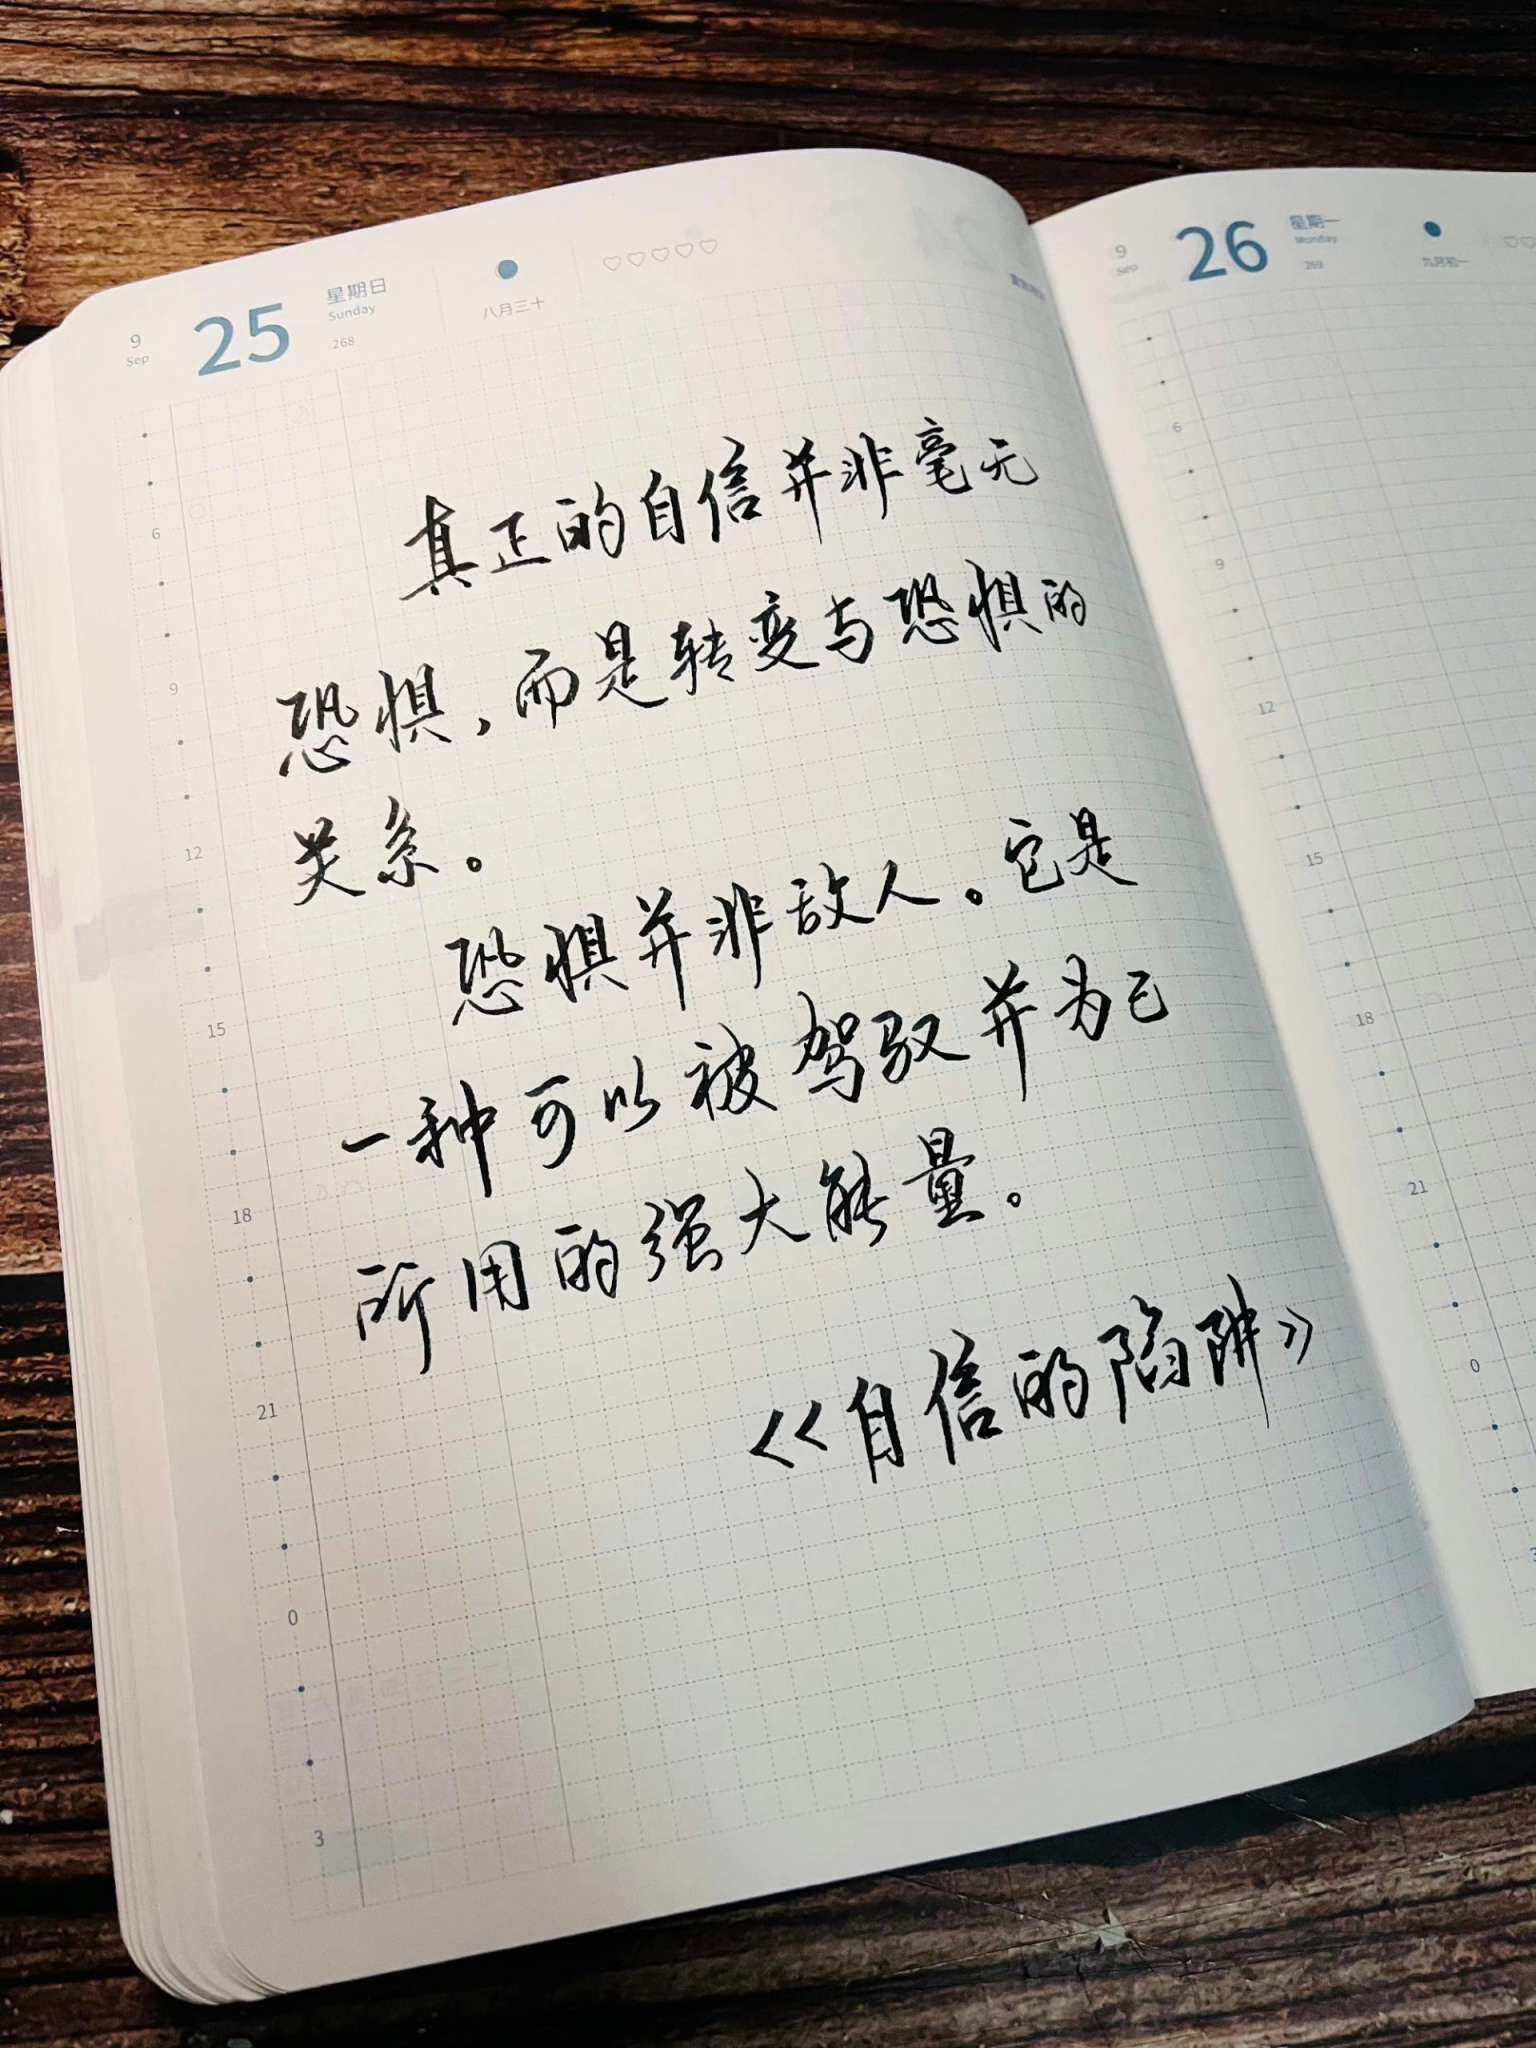 9 Sep 25 星期日 Sunday 268 八月三十
真正的自信并非毫无
恐惧，而是转变与恐惧的
关系。
恐惧并非敌人。它是
一种可以被驾驭并为己
所用的强大能量。
《自信的陷阱》
6
9
12
15
18
21
0
3
9 Sep 26 星期一 Monday 269 九月初一
6
9
12
15
18
21
0